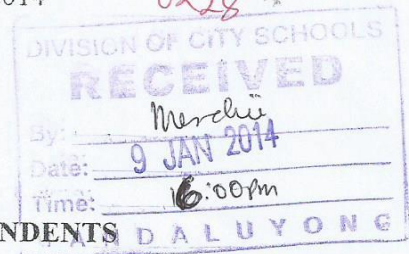 0228
DIVISION OF CITY SCHOOLS
RECEIVED
By:
Date: 9 JAN 2014
Time: 6:00pm
NDENTS
ANDALUYONG